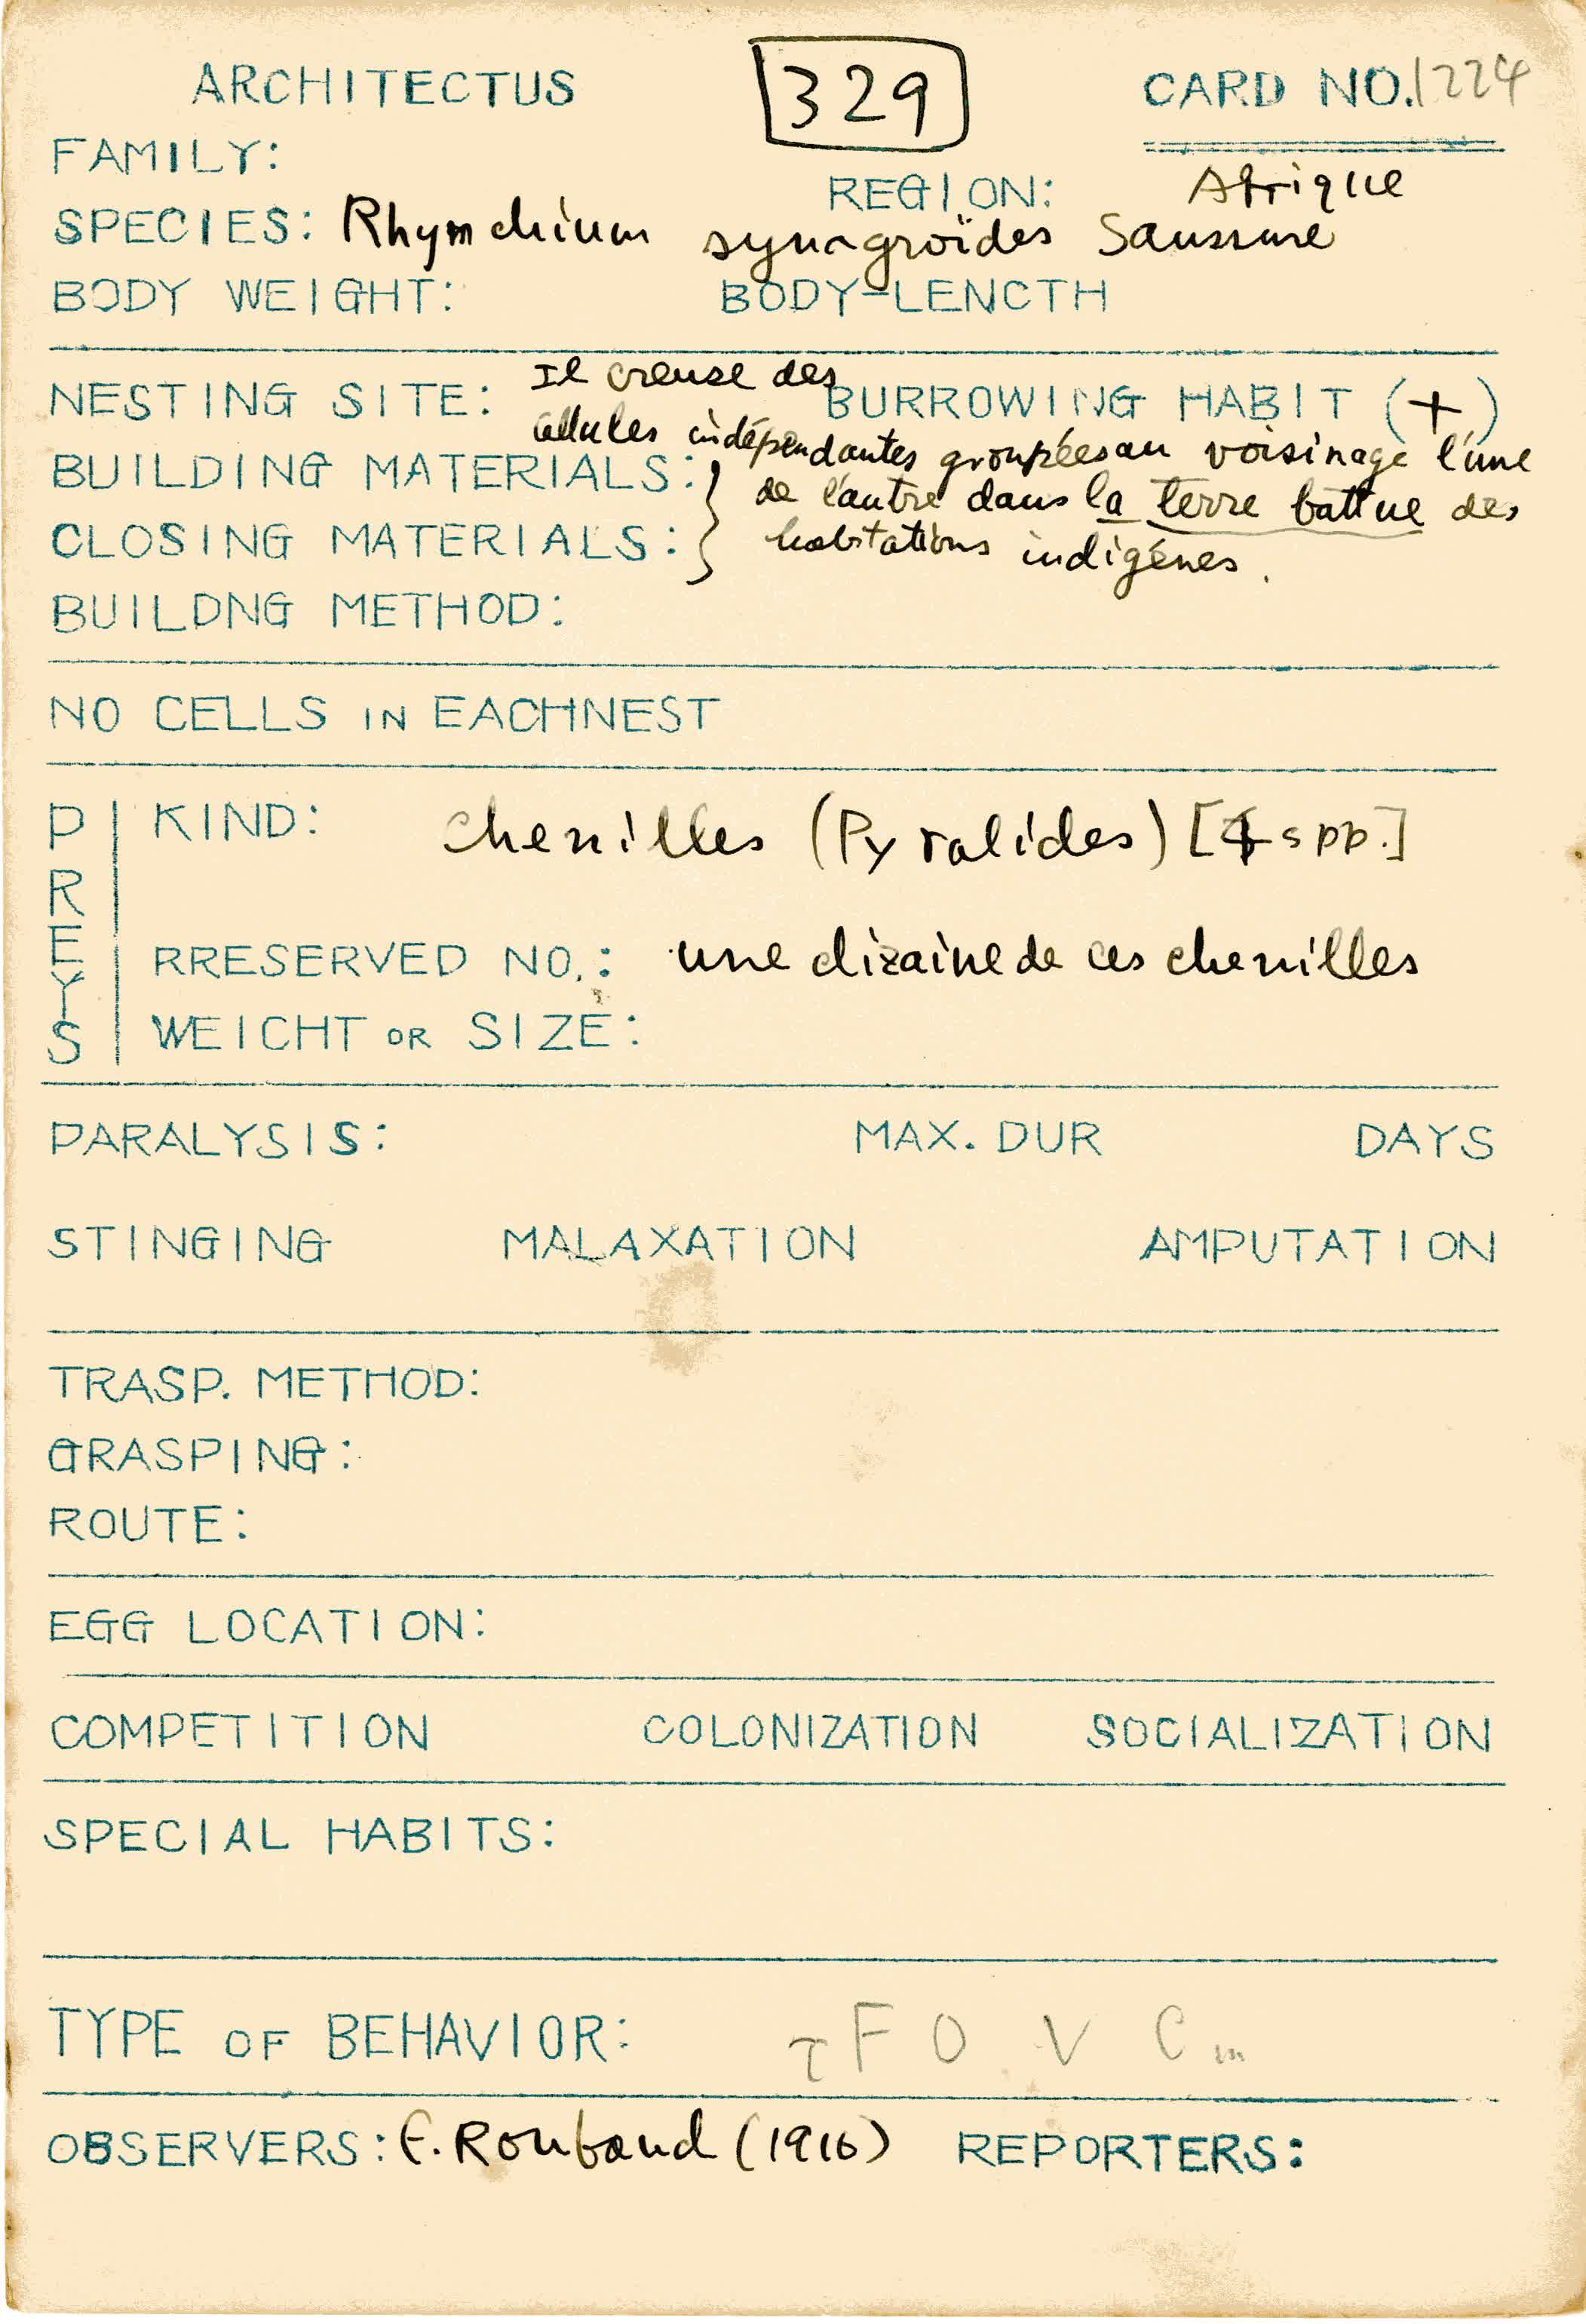 ARCHITECTUS 329 CARD NO. 1224
FAMILY:
REGION: Afrique
SPECIES: Rhynchium synagroïdes Saussure
BODY WEIGHT: BODY-LENCTH
NESTING SITE: Il creuse des BURROWING HABIT (+)
cellules indépendantes groupées au voisinage l'une
BUILDING MATERIALS: de l'autre dans la terre battue des
CLOSING MATERIALS: habitations indigénes.
BUILDNG METHOD:
NO CELLS IN EACHNEST
PREYS
KIND: chenilles (Pyralides) [4 spp.]
RRESERVED NO.: une dizaine de ces chenilles
WEICHT OR SIZE:
PARALYSIS: MAX. DUR DAYS
STINGING MALAXATION AMPUTATION
TRASP. METHOD:
GRASPING:
ROUTE:
EGG LOCATION:
COMPETITION COLONIZATION SOCIALIZATION
SPECIAL HABITS:
TYPE OF BEHAVIOR: τ F O V C m
OBSERVERS: E. Roubaud (1916) REPORTERS: